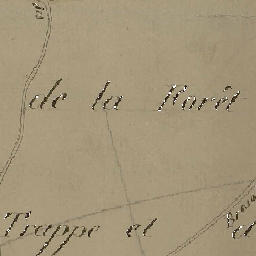 de la Forêt
Trappe et